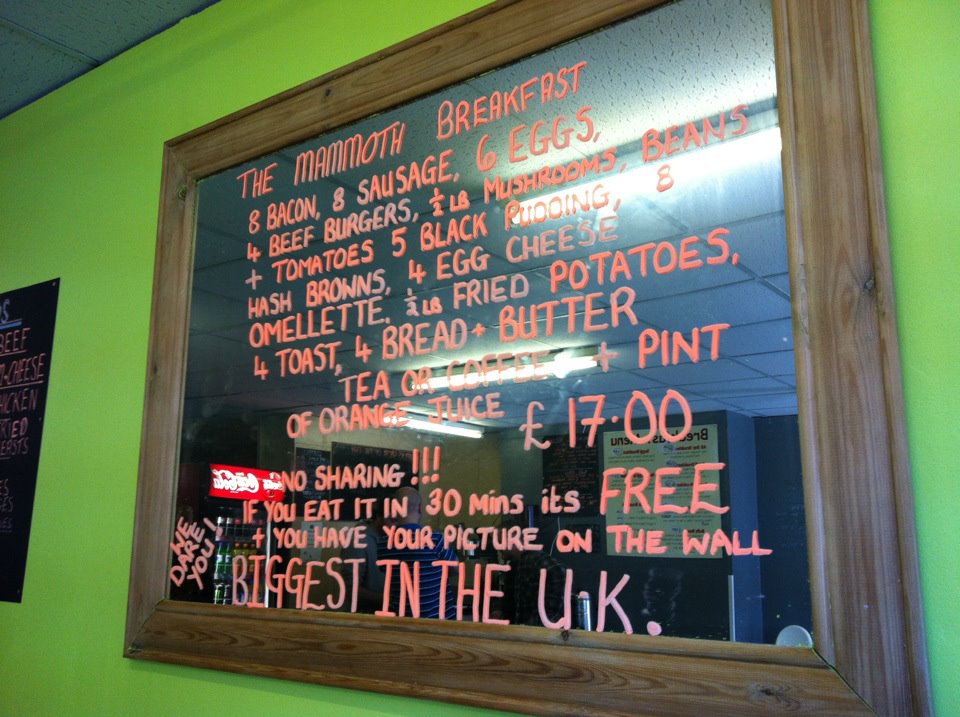 THE MAMMOTH BREAKFAST
8 BACON, 8 SAUSAGE, 6 EGGS,
4 BEEF BURGERS, ½ LB MUSHROOMS, BEANS
+ TOMATOES 5 BLACK PUDDING, 8
HASH BROWNS, 4 EGG CHEESE
OMELLETTE, ½ LB FRIED POTATOES,
4 TOAST, 4 BREAD + BUTTER
TEA OR COFFEE + PINT
OF ORANGE JUICE £17.00
NO SHARING!!!
IF YOU EAT IT IN 30 Mins its FREE
+ YOU HAVE YOUR PICTURE ON THE WALL
WE
DARE
YOU!
BIGGEST IN THE U.K.
BEEF
CHEESE